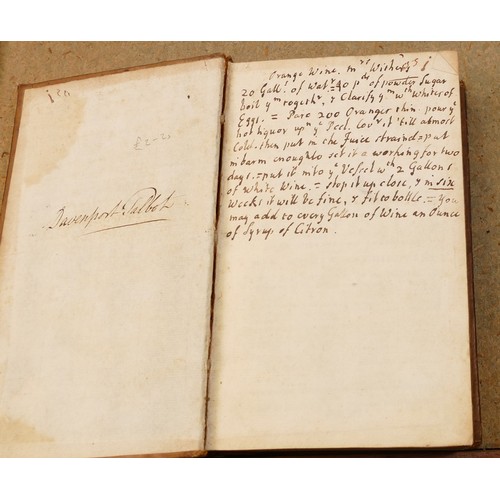 £2-20
Davenport Talbot
Orange Wine. Mrs Withers
20 Galls. of Watr. 40 pds of powder Sugar
boil ym togethr. & Clarify ym wth Whites of
Eggs. = Pare 200 Oranges thin pour ye
hot liquor upn ye Peel. Covr. it till almost
Cold. then put in the Juice strained & put
in barm enough to set it a working for two
days. = put it into ye Vessel wth 2 Gallons
of White Wine. = stop it up close, & in six
Weeks it will be fine, & fit to bottle. = You
may add to every Gallon of Wine an Ounce
of Syrup of Citron.